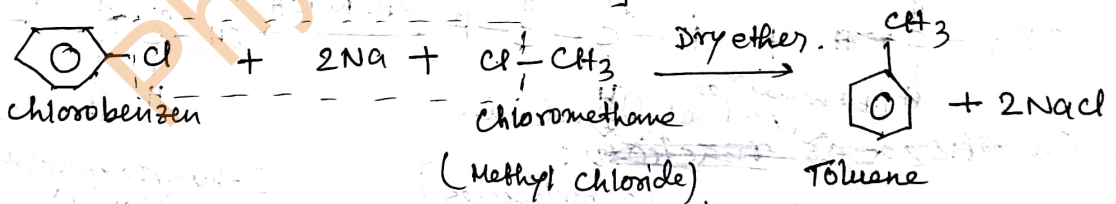 CH3
Cl + 2Na + Cl – CH3 Dry ether. + 2NaCl
Chlorobenzen Chloromethane
(Methyl Chloride) Toluene